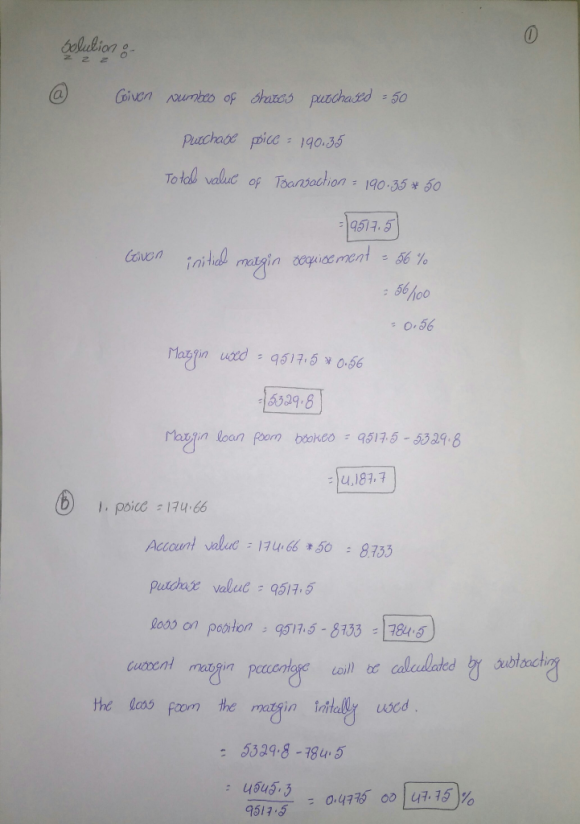 ①
Solution :-
ⓐ Given number of shares purchased = 50
Purchase price = 190.35
Total value of Transaction = 190.35 * 50
= 9517.5
Given initial margin requirement = 56 %
= 56/100
= 0.56
Margin used = 9517.5 * 0.56
= 5329.8
Margin loan from broker = 9517.5 - 5329.8
= 4,187.7
ⓑ 1. price = 174.66
Account value = 174.66 * 50 = 8733
purchase value = 9517.5
loss on position = 9517.5 - 8733 = 784.5
current margin percentage will be calculated by subtracting
the loss from the margin initally used.
= 5329.8 - 784.5
= 4545.3 / 9517.5 = 0.4775 or 47.75 %